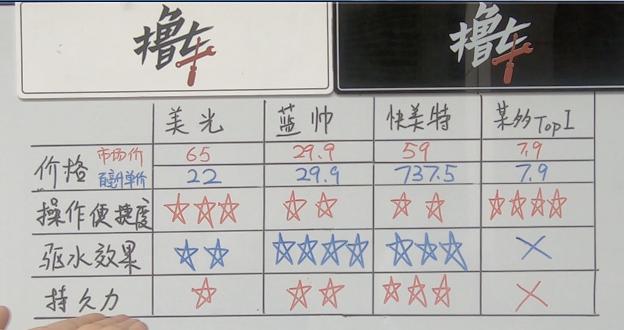 撸车
撸车
美光 蓝帅 快美特 某多Top1
价格 市场价 65 29.9 59 7.9
百毫升单价 22 29.9 737.5 7.9
操作便捷度
驱水效果
持久力